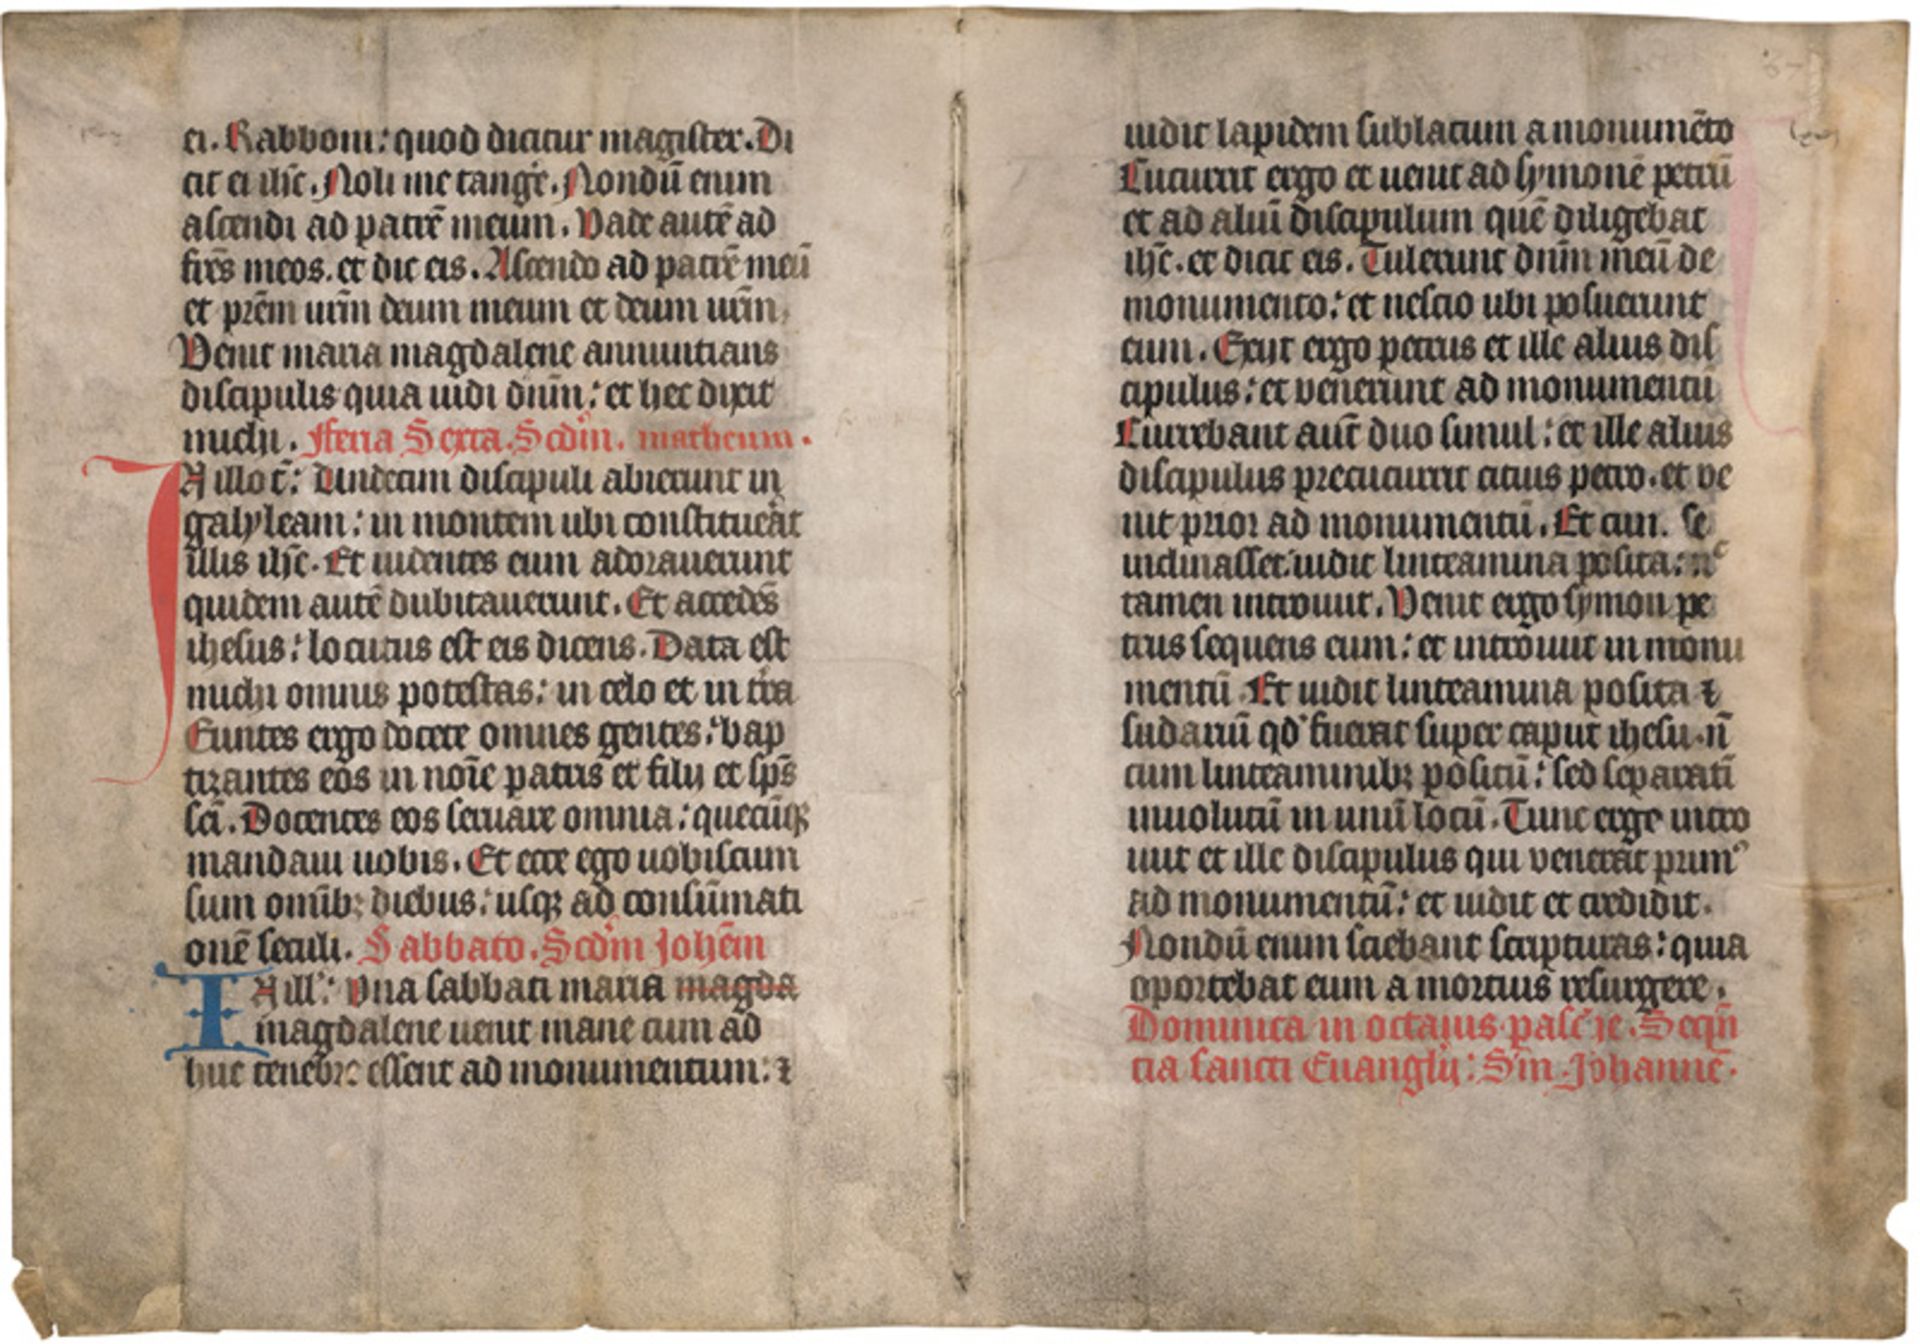 ei. Rabboni: quod dicitur magister. Di
cit ei ihc̄. Noli me tangē. Nondū enim
ascendi ad patrē meum. Vade autē ad
fr̄es meos. et dic eis. Ascendo ad patrē meū
et pr̄em ur̄m deum meum et deum ur̄m
Venit maria magdalene annuntians
discipulis quia uidi dn̄m: et hec dixit
michi. Feria Sexta. Scd̄m. matheum.
In illo t̄: Undecim discipuli abierunt in
galyleam: in montem ubi constituerat
illis ihc̄. Et uidentes eum adorauerunt
quidem autē dubitauerunt. Et accedēs
ihesus: locutus est eis dicens. Data est
michi omnis potestas: in celo et in tr̄a
Euntes ergo docete omnes gentes: bap
tizantes eos in noīe patris et filij et sp̄s
sc̄i. Docentes eos seruare omnia: quecūqꝫ
mandaui uobis. Et ecce ego uobiscum
sum omībꝫ diebus: usqꝫ ad consūmati
onē seculi. Sabbato. Scd̄m Johēm
In ill': Vna sabbati maria magda
magdalene uenit mane cum ad
huc tenebre essent ad monumentum: ⁊
uidit lapidem sublatum a monumēto
Cucurrit ergo et uenit ad symonē petrū
et ad aliū discipulum quē diligebat
ihc̄. et dicit eis. Tulerunt dn̄m meū de
monumento: et nescio ubi posuerunt
eum. Exijt ergo petrus et ille alius dis
cipulus: et venerunt ad monumentū
Currebant aut̄ duo simul: et ille alius
discipulus precucurrit citius petro. et ve
nit prior ad monumentū. Et cum se
inclinasset: uidit linteamina posita: nᶜ
tamen introiuit. Venit ergo symon pe
trus sequens eum: et introiuit in monu
mentū. Et uidit linteamina posita ⁊
sudariū qd' fuerat super caput ihesu. n̄
cum linteaminibꝫ positū: sed separatī
inuolutū in unū locū. Tunc ergo intro
iuit et ille discipulus qui venerat prim⁹
ad monumentū: et uidit et credidit.
Nondū enim sciebant scripturas: quia
oportebat eum a mortuis resurgere.
Dominica in octauis pasche. Seqn̄
cia sancti Euanglij: S'm. Johannē.